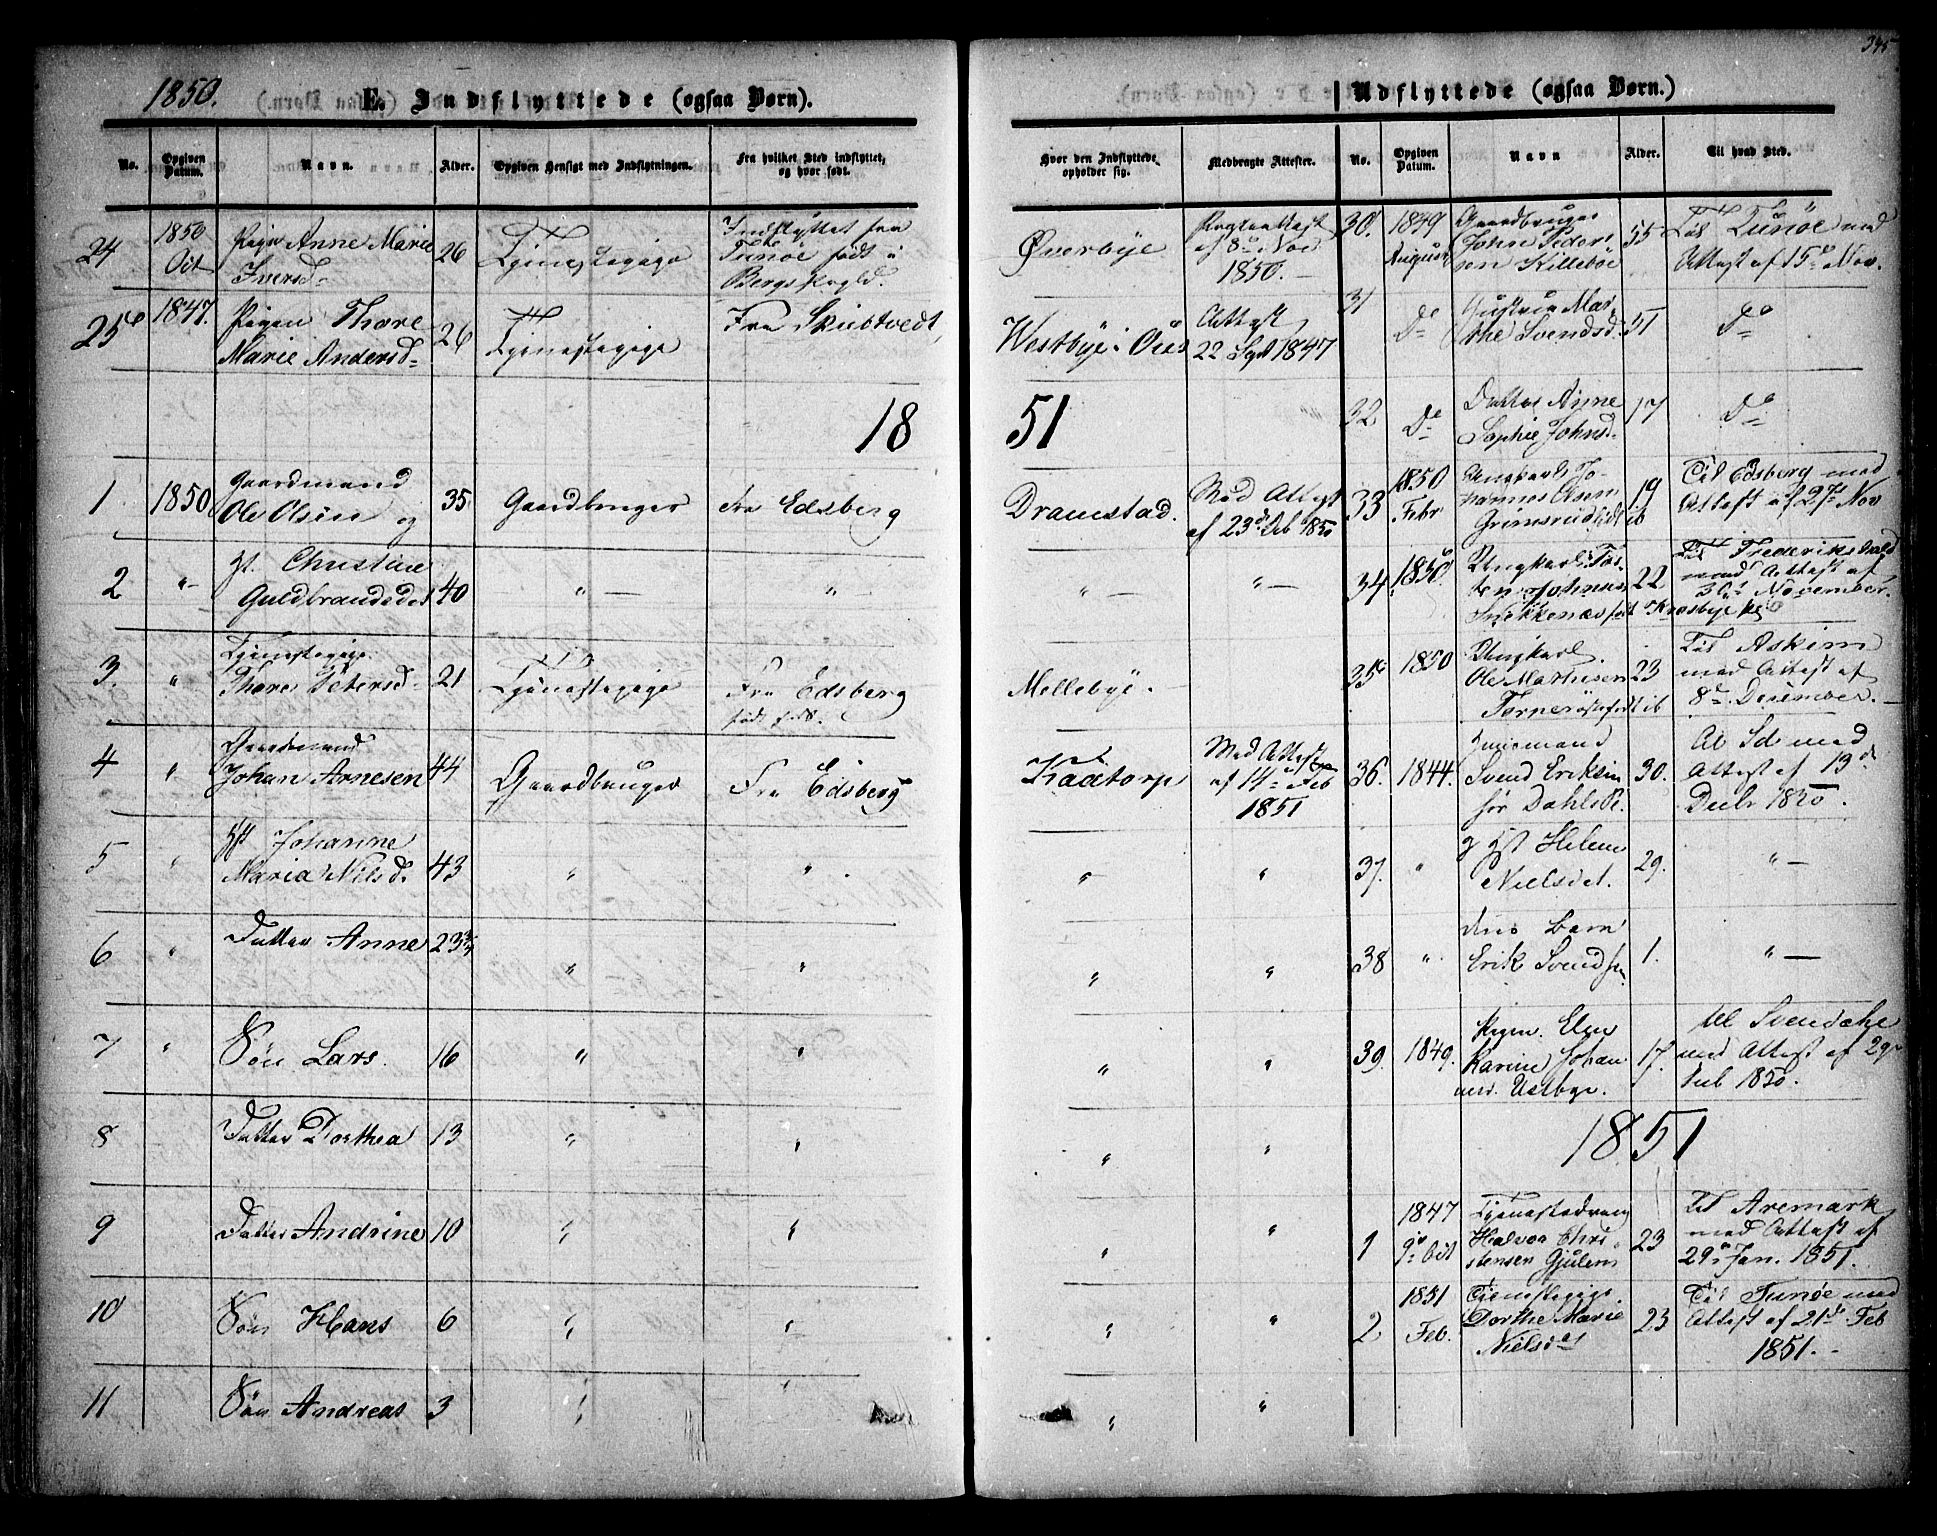 345
1850.
E. Indflyttede (ogsaa Børn).
No.
Opgiven Datum.
Navn.
Alder.
Opgiven Hensigt med Indflytningen.
Fra hvilket Sted indflyttet, og hvor født.
24 1850 Oct Pigen Anne Marie 26 Tjenestepige Indflyttet fra
Iversd. Tunøe født i
25 1847. Pigen Thore 26 Tjenestepige Fra Skibtvedt,
Marie Andersd.
18
1 1850 Gaardmand
Ole Olsen og 35 Gaardbruger Fra Edsberg
2 "- Christine
Guldbrandsdt 40 " — "
3. " Tjenestepige
Thore Petersd. 21 Tjenestepige Fra Edsberg
4 " Gaardmand
Johan Arnesen 44 Gaardbruger Fra Edsberg
5 " Johanne
Maria Nilsd. 43 " "
6 " Datter Anne 23 " "
7 " Søn Lars. 16 " "
8 Datter Dorthea 13 " "
9 Datter Andrine 10 " "
10 Søn Hans 6 " "
11 Søn Andreas 3 " "
Hvor den Indflyttede opholder sig.
Medbragte Attester.
Øverbye
af 8de Nov
1850.
Westbye i Attest
22 Sept 1847
51
Dramstad. Med Attest
af 23de Feb 1850
" — " —
Mellebye.
Kaatorp Med Attest
af 14de Feb
1851
" "
" "
" "
" "
" "
" "
" "
Udflyttede (ogsaa Børn.)
No.
Opgiven Datum.
Navn
Alder.
Til hvad Sted.
30. 1849 August Gaardbruger
John Peder- 55 Til Tunøe med
sen Killeboe Attest af 15de Nov.
31 Do Hustrue Mar-
the Svendsd. 51 Do
32 Do Datter Anne 17 Do
Sophie Johnsd.
33 1850 Febr Ungkarl Jo-
hannes Olsen 19 Til Edsberg med
Grimsrud født ib Attest af 27de Nov
34 1850 Ungkarl Tor- 22 Til Frederikshald
sten Johnsen med Attest af
født Krosbye November.
35 1850 Ungkarl 23 Til Askim
Ole Mathisen med Attest af
født ib 8de December.
36. 1844. Huusmand
Svend Eriksen 30. Til Id med
Attest af 13de
Decbr 1850.
37. " Helene
Nielsdat. 29. " —
38 " Barn
Erik Svendsen 1. " —
39. 1849. Pigen Elen
Karine Johan 17. med Attest af 29de
1850.
1851
1 1847 9de Oct Tjenestedreng
Halvor Chri- 23 Til Aremark
stensen med Attest af
29de Jan. 1851.
2 1851 Feb. Tjenestepige
Dorthe Marie 23 Til Tunøe med
Nielsdat Attest af 21de Feb
1851.